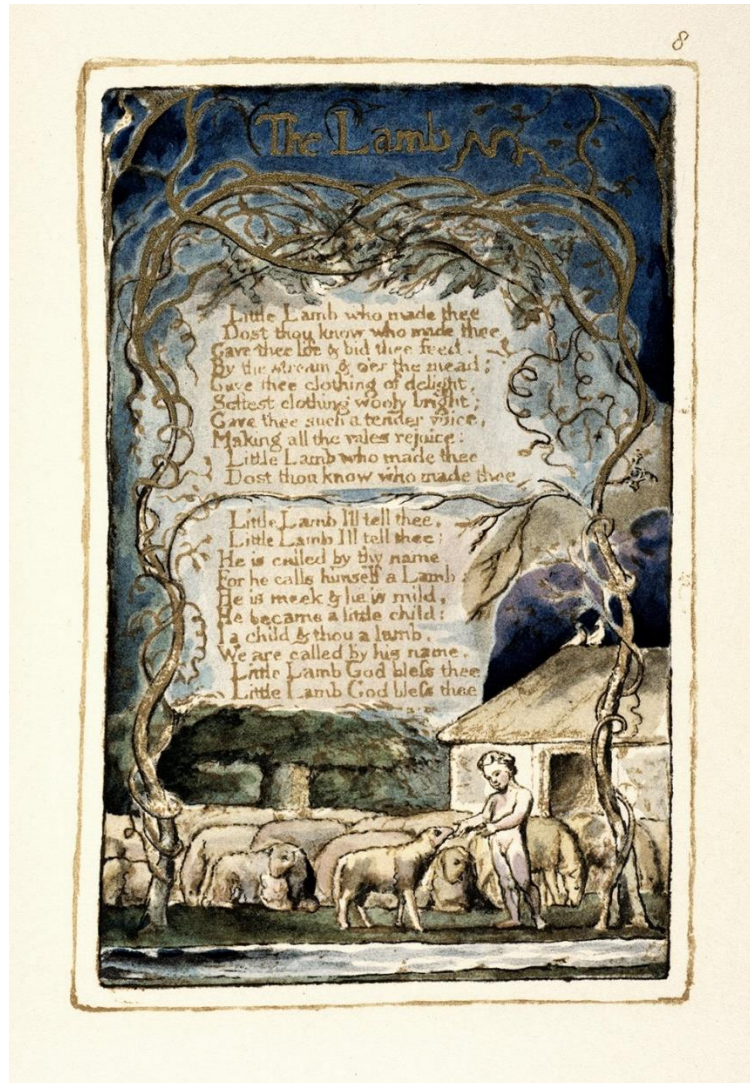 8
The Lamb
Little Lamb who made thee
Dost thou know who made thee
Gave thee life & bid thee feed.
By the stream & o'er the mead;
Gave thee clothing of delight,
Softest clothing wooly bright;
Gave thee such a tender voice,
Making all the vales rejoice:
Little Lamb who made thee
Dost thou know who made thee
Little Lamb I'll tell thee,
Little Lamb I'll tell thee;
He is called by thy name
For he calls himself a Lamb:
He is meek & he is mild,
He became a little child:
I a child & thou a lamb,
We are called by his name.
Little Lamb God bleſs thee
Little Lamb God bleſs thee